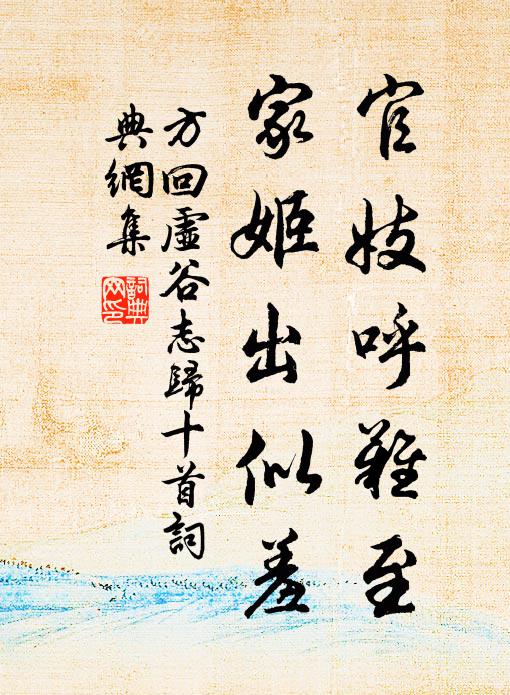 官妓呼難至
家姬出似羞
方回虛谷志歸十首詞
典網集
詞典
网印